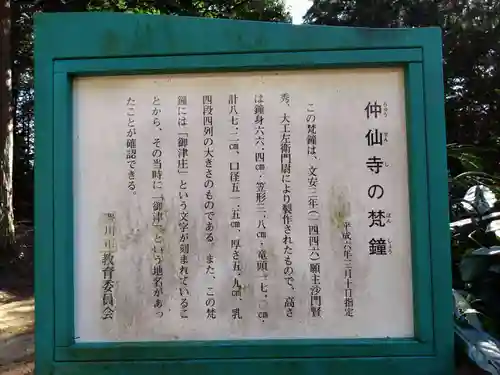 仲仙寺の梵鐘
ちゅう せん じ ぼん しょう
平成六年三月十日指定
この梵鐘は、文安三年(一四四六)願主沙門賢
秀、大工左衛門尉により製作されたもので、高さ
は鐘身六六.四㎝・笠形三.八㎝・竜頭一七.〇㎝・
計八七.二㎝、口径五一.五㎝、厚さ五.九㎝、乳
四段四列の大きさのものである。また、この梵
鐘には「御津庄」という文字が刻まれているこ
とから、その当時に「御津」という地名があっ
たことが確認できる。
川市教育委員会